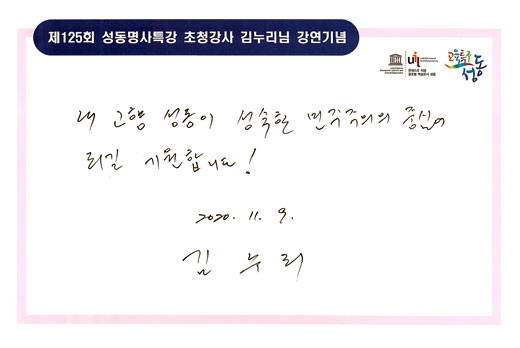 제125회 성동명사특강 초청강사 김누리님 강연기념
교육특구
성동
내 고향 성동이 성숙한 민주주의의 중심이
되길 기원합니다!
2020. 11. 9.
김 누 리